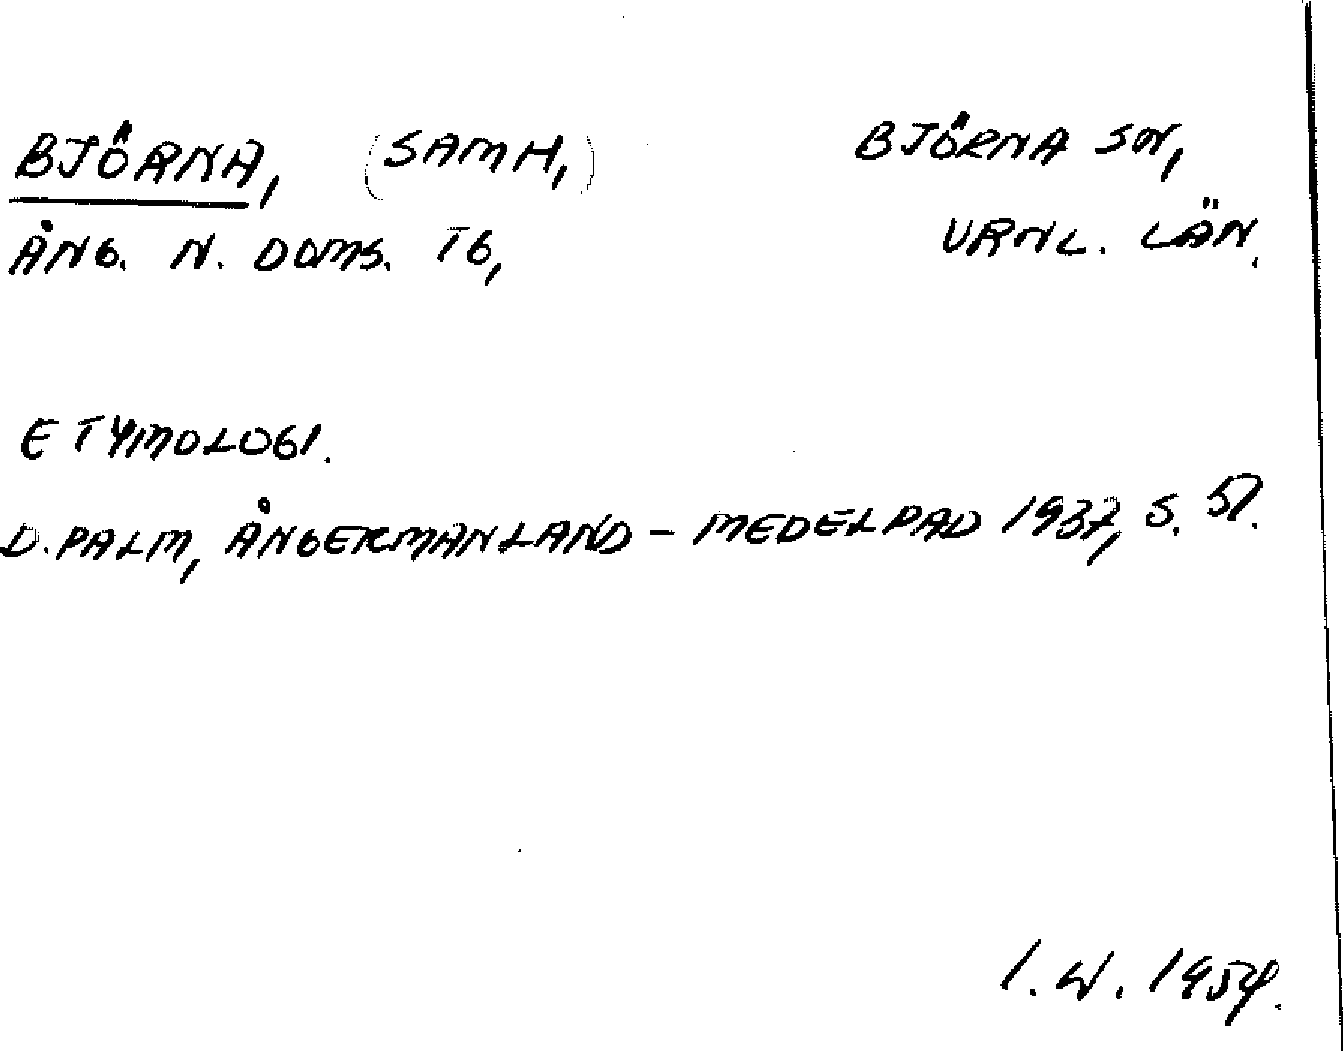 BJÖRNA, (SAMH,) BJÖRNA SN,
ÅNG. N. DOMS. TG, VRNL. LÄN.
ETYMOLOGI.
D. PALM, ÅNGERMANLAND - MEDELPAD 1937, S. 57.
I. W. 1959.